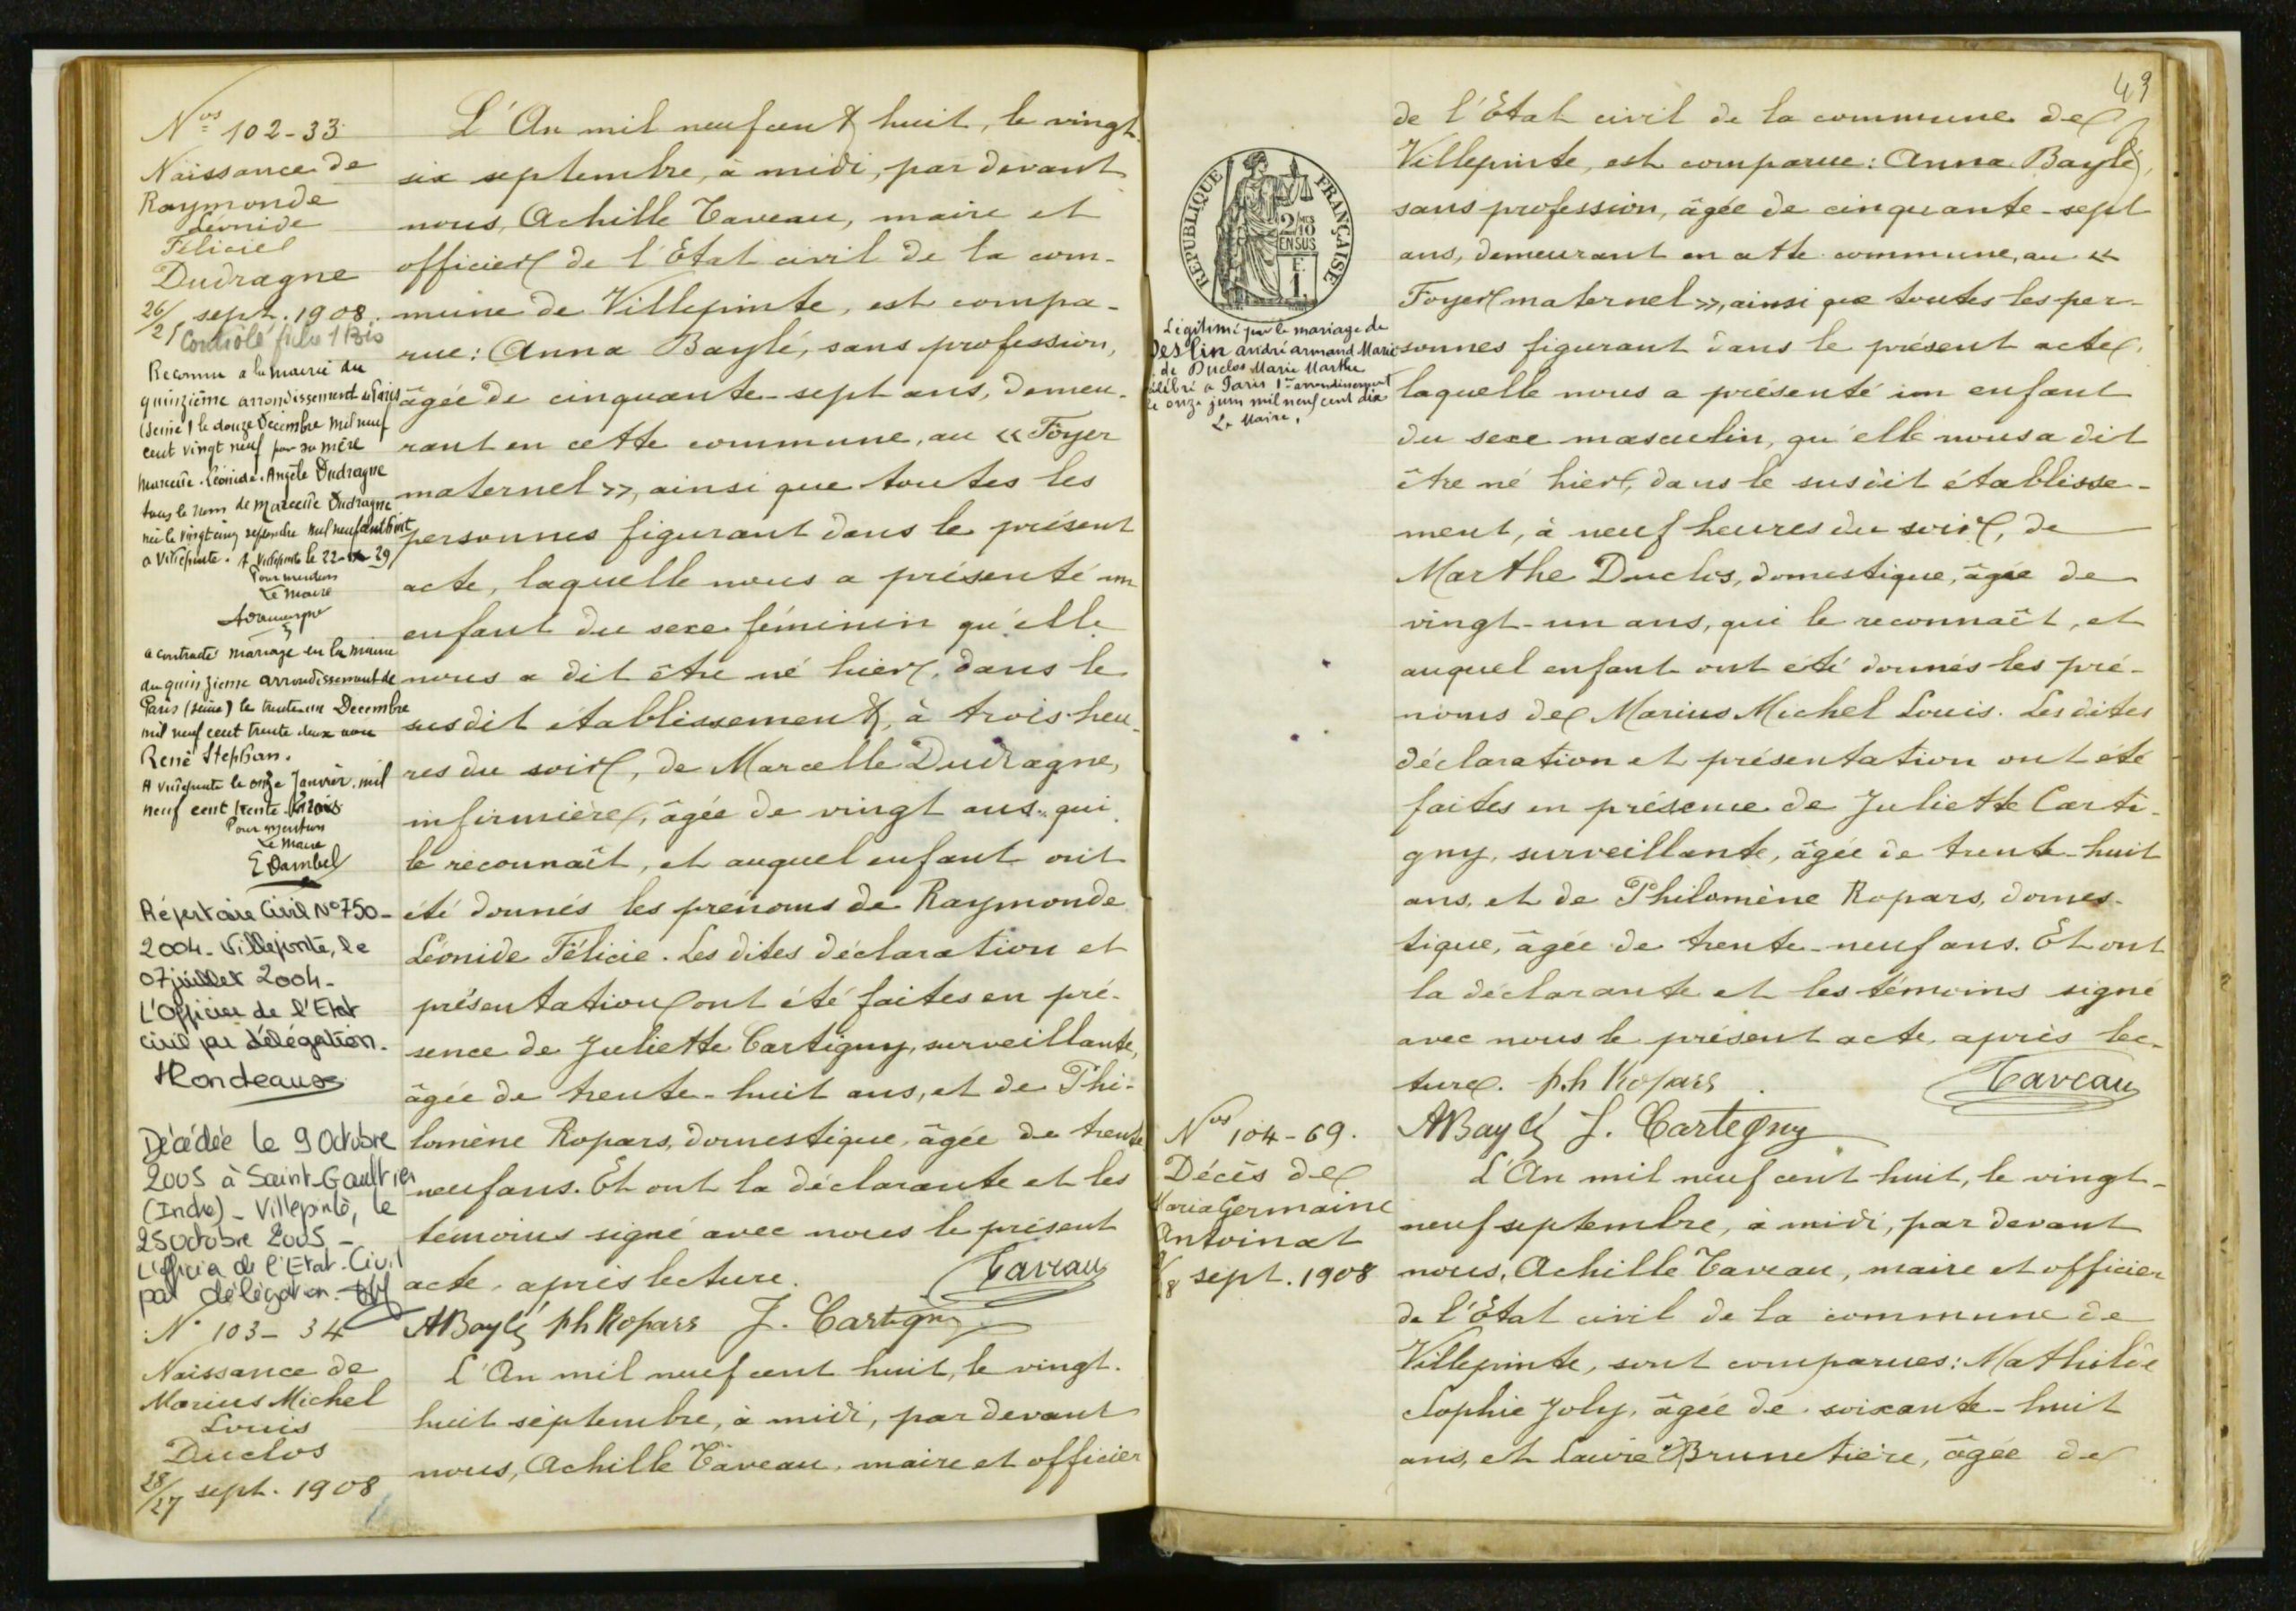 Nos 102-33
Naissance de
Raymonde
Léonide
Félicie
Dudragne
26/25 sept. 1908.
Contrôlé fiche 1 Bis
Reconnu a la mairie du
quinzième arrondissement de Paris
(Seine) le douze Décembre mil neuf
cent vingt neuf par sa mère
Marcelle. Léonide. Angèle Dudragne
sous le nom de Marcelle Dudragne
née le vingt cinq septembre mil neuf cent huit
a Villepinte. A Villepinte le 22- -29
Pour mention
Le Maire
a contracté mariage en la mairie
du quinzieme arrondissement de
Paris (Seine) le trente un Decembre
mil neuf cent trente deux avec
René Stephan.
A Villepinte le onze Janvier mil
neuf cent trente trois
Pour mention
Le Maire
E Dambel
Répertoire Civil N°750-
2004. Villepinte, le
07 juillet 2004-
L'Officier de l'Etat
civil par délégation.
HRondeaux
Décédée le 9 Octobre
2005 à Saint-Gaultier
(Indre) - Villepinte, le
25 octobre 2005 -
L'officier de l'Etat-Civil
par délégation.
N° 103- 34
Naissance de
Marius Michel
Louis
Duclos
28/27 sept. 1908
L'An mil neuf cent huit, le vingt-
six septembre, à midi, par devant
nous, Achille Taveau, maire et
officier de l'Etat civil de la com-
mune de Villepinte, est compa-
rue: Anna Baylé, sans profession,
âgée de cinquante-sept ans, demeu-
rant en cette commune, au «Foyer
maternel», ainsi que toutes les
personnes figurant dans le présent
acte, laquelle nous a présenté un
enfant du sexe féminin qu'elle
nous a dit être né hier, dans le
susdit établissement, à trois heu-
res du soir, de Marcelle Dudragne,
infirmière, âgée de vingt ans, qui
le reconnaît, et auquel enfant ont
été donnés les prénoms de Raymonde
Léonide Félicie. Les dites déclaration et
présentation ont été faites en pré-
sence de Juliette Cartigny, surveillante,
âgée de trente-huit ans, et de Phi-
lomène Ropars, domestique, âgée de trente
neuf ans. Et ont la déclarante et les
témoins signé avec nous le présent
acte, après lecture. Taveau
ABaylé ph Ropars J. Cartigny
L'An mil neuf cent huit, le vingt-
huit septembre, à midi, par devant
nous, Achille Taveau, maire et officier
49
RÉPUBLIQUE FRANÇAISE
2/10
EN SUS
F.
1.
Légitimé par le mariage de
Deslin andré armand Marie
de Duclos Marie Marthe
célébré a Paris 1er arrondissement
le onze juin mil neuf cent dix
Le Maire,
de l'Etat civil de la commune de
Villepinte, est comparue: Anna Baylé,
sans profession, âgée de cinquante-sept
ans, demeurant en cette commune, au «
Foyer maternel», ainsi que toutes les per-
sonnes figurant dans le présent acte,
laquelle nous a présenté un enfant
du sexe masculin, qu'elle nous a dit
être né hier, dans le susdit établisse-
ment, à neuf heures du soir, de
Marthe Duclos, domestique, âgée de
vingt-un ans, qui le reconnaît, et
auquel enfant ont été donnés les pré-
noms de Marius Michel Louis. Les dites
déclaration et présentation ont été
faites en présence de Juliette Carti-
gny, surveillante, âgée de trente-huit
ans, et de Philomène Ropars, domes-
tique, âgée de trente-neuf ans. Et ont
la déclarante et les témoins signé
avec nous le présent acte, après lec-
ture. ph Ropars Taveau
ABaylé J. Cartegny
Nos 104-69.
Décès de
Maria Germaine
Antoinat
28 sept. 1908
L'An mil neuf cent huit, le vingt-
neuf septembre, à midi, par devant
nous, Achille Taveau, maire et officier
de l'Etat civil de la commune de
Villepinte, sont comparues: Mathilde
Sophie Joly, âgée de soixante-huit
ans, et Laure Brunetière, âgée de